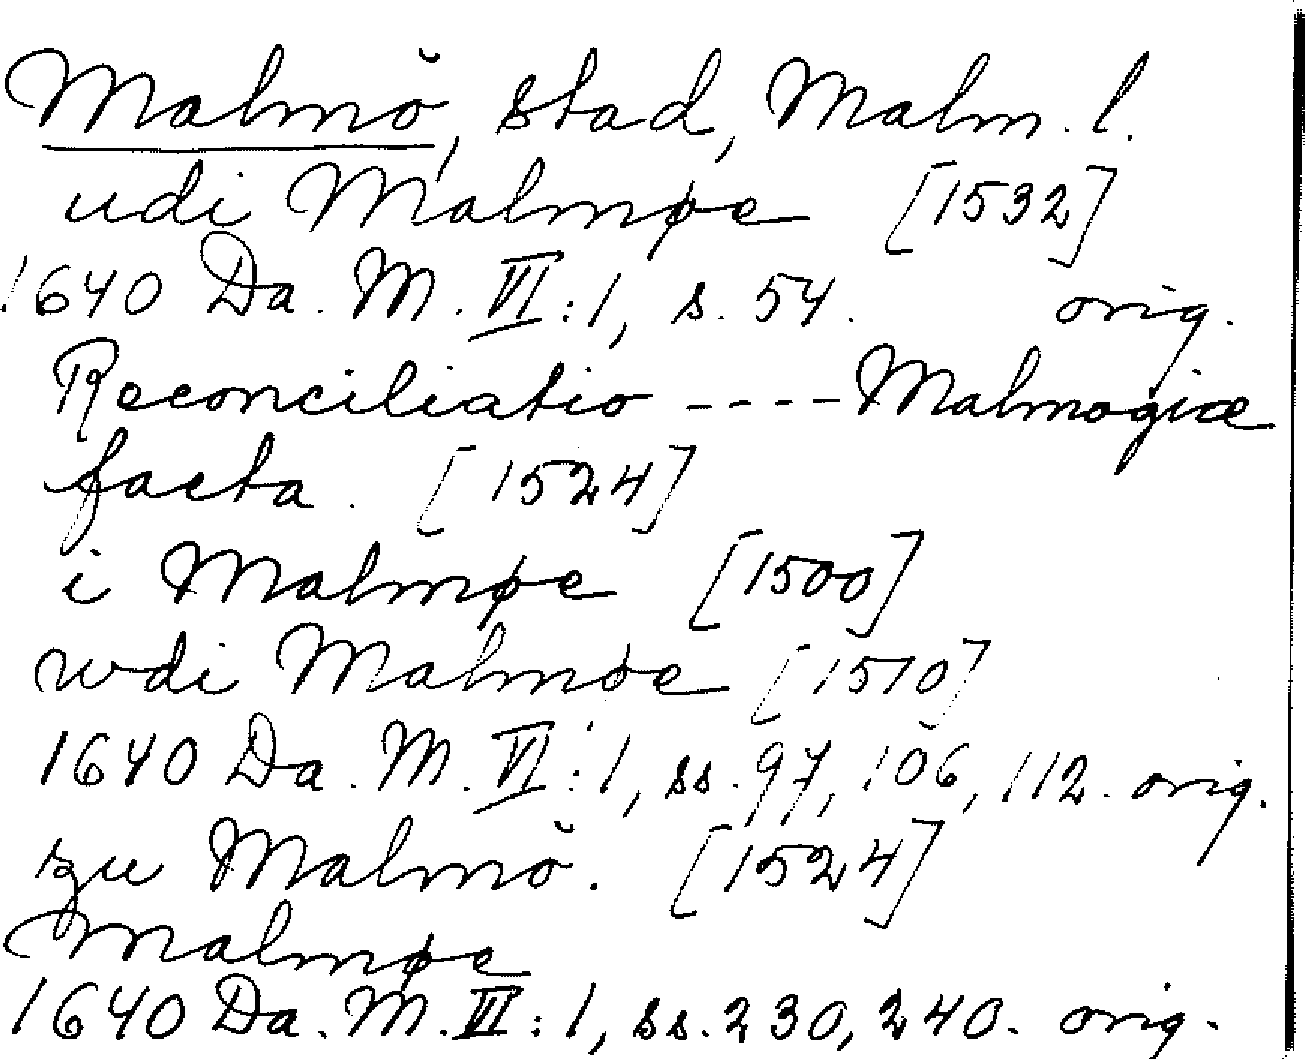 Malmö, stad, Malm. l.
udi Malmøe [1532]
1640 Da. M. VI:1, s. 54. orig.
Reconciliatio ---- Malmogiæ
facta. [1524]
i Malmøe [1500]
wdi Malmøe [1510]
1640 Da. M. VI:1, ss. 97, 106, 112. orig.
zu Malmö. [1524]
Malmøe
1640 Da. M. VI:1, ss. 230, 240. orig.